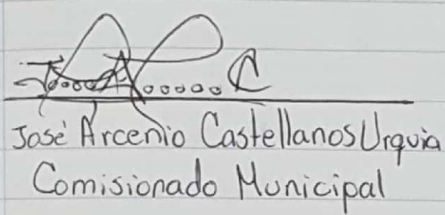 José Arcenio Castellanos Urquia
Comisionado Municipal